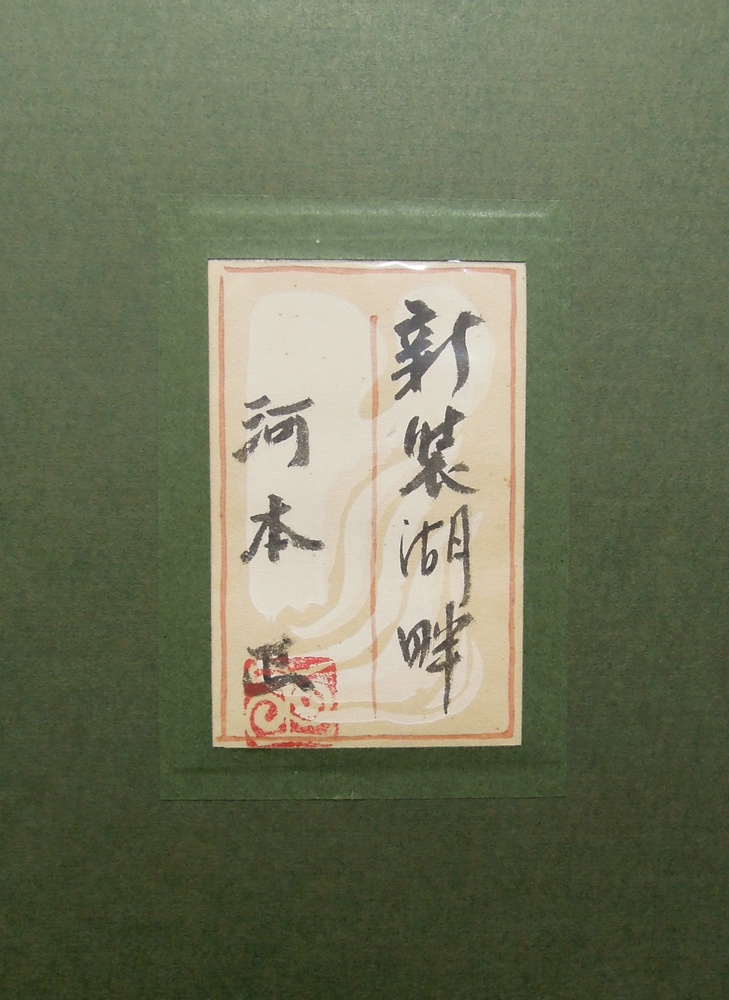 新装湖畔
河本正